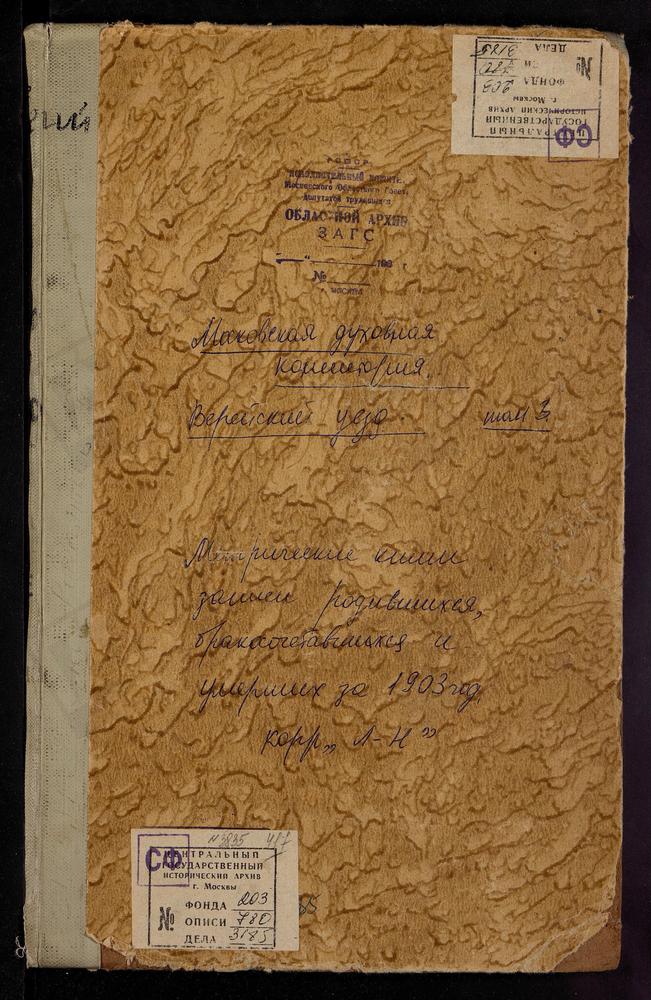 СФ
ЦЕНТРАЛЬНЫЙ
ГОСУДАРСТВЕННЫЙ
ИСТОРИЧЕСКИЙ АРХИВ
г. Москвы
№
ФОНДА 203
ОПИСИ 780
ДЕЛА 3185
РСФСР
ИСПОЛНИТЕЛЬНЫЙ КОМИТЕТ
Московского Областного Совет.
депутатов трудящихся
ОБЛАСТНОЙ АРХИВ
ЗАГС
№
г. МОСКВА
Московская духовная
консистория.
Верейский уезд. том 3
Метрические книги
записи родившихся,
бракосочетавшихся и
умерших за 1903 год,
корр „Л-Н"
№ 3835 417
СФ
ЦЕНТРАЛЬНЫЙ
ГОСУДАРСТВЕННЫЙ
ИСТОРИЧЕСКИЙ АРХИВ
г. Москвы
№
ФОНДА 203
ОПИСИ 780
ДЕЛА 3185